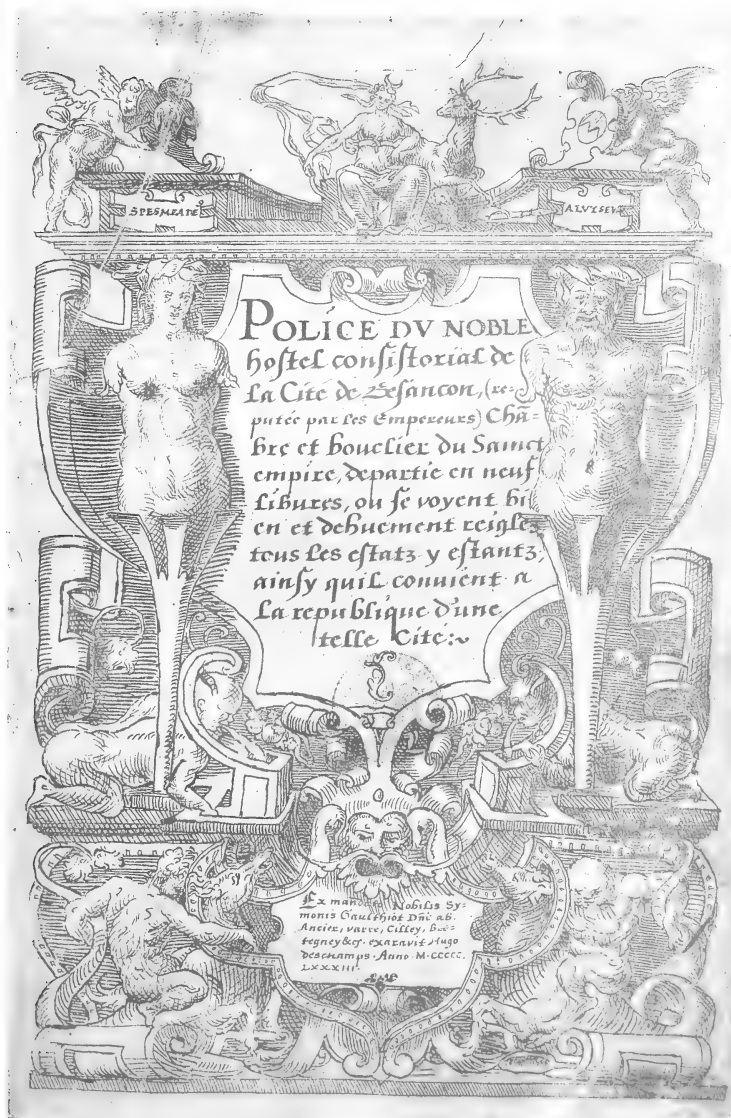 SPES MEA DE9
ALUYSEUR
POLICE DV NOBLE
hostel consistorial de
la Cité de Besancon, (re-
putée par les Empereurs) Chã-
bre et bouclier du Sainct
empire, departie en neuf
libures, ou se voyent bi
en et dehuement reiglez
tous les estatz y estantz,
ainsy quil convient a
la republique d'une
telle Cité:~
Ex manda Nobilis Sy-
monis Gaulthiot Dñi ab
Ancier, varre, Cilley,
tegney&c, exaravit Hugo
deschamps. Anno M.CCCCC.
LXXXIII.